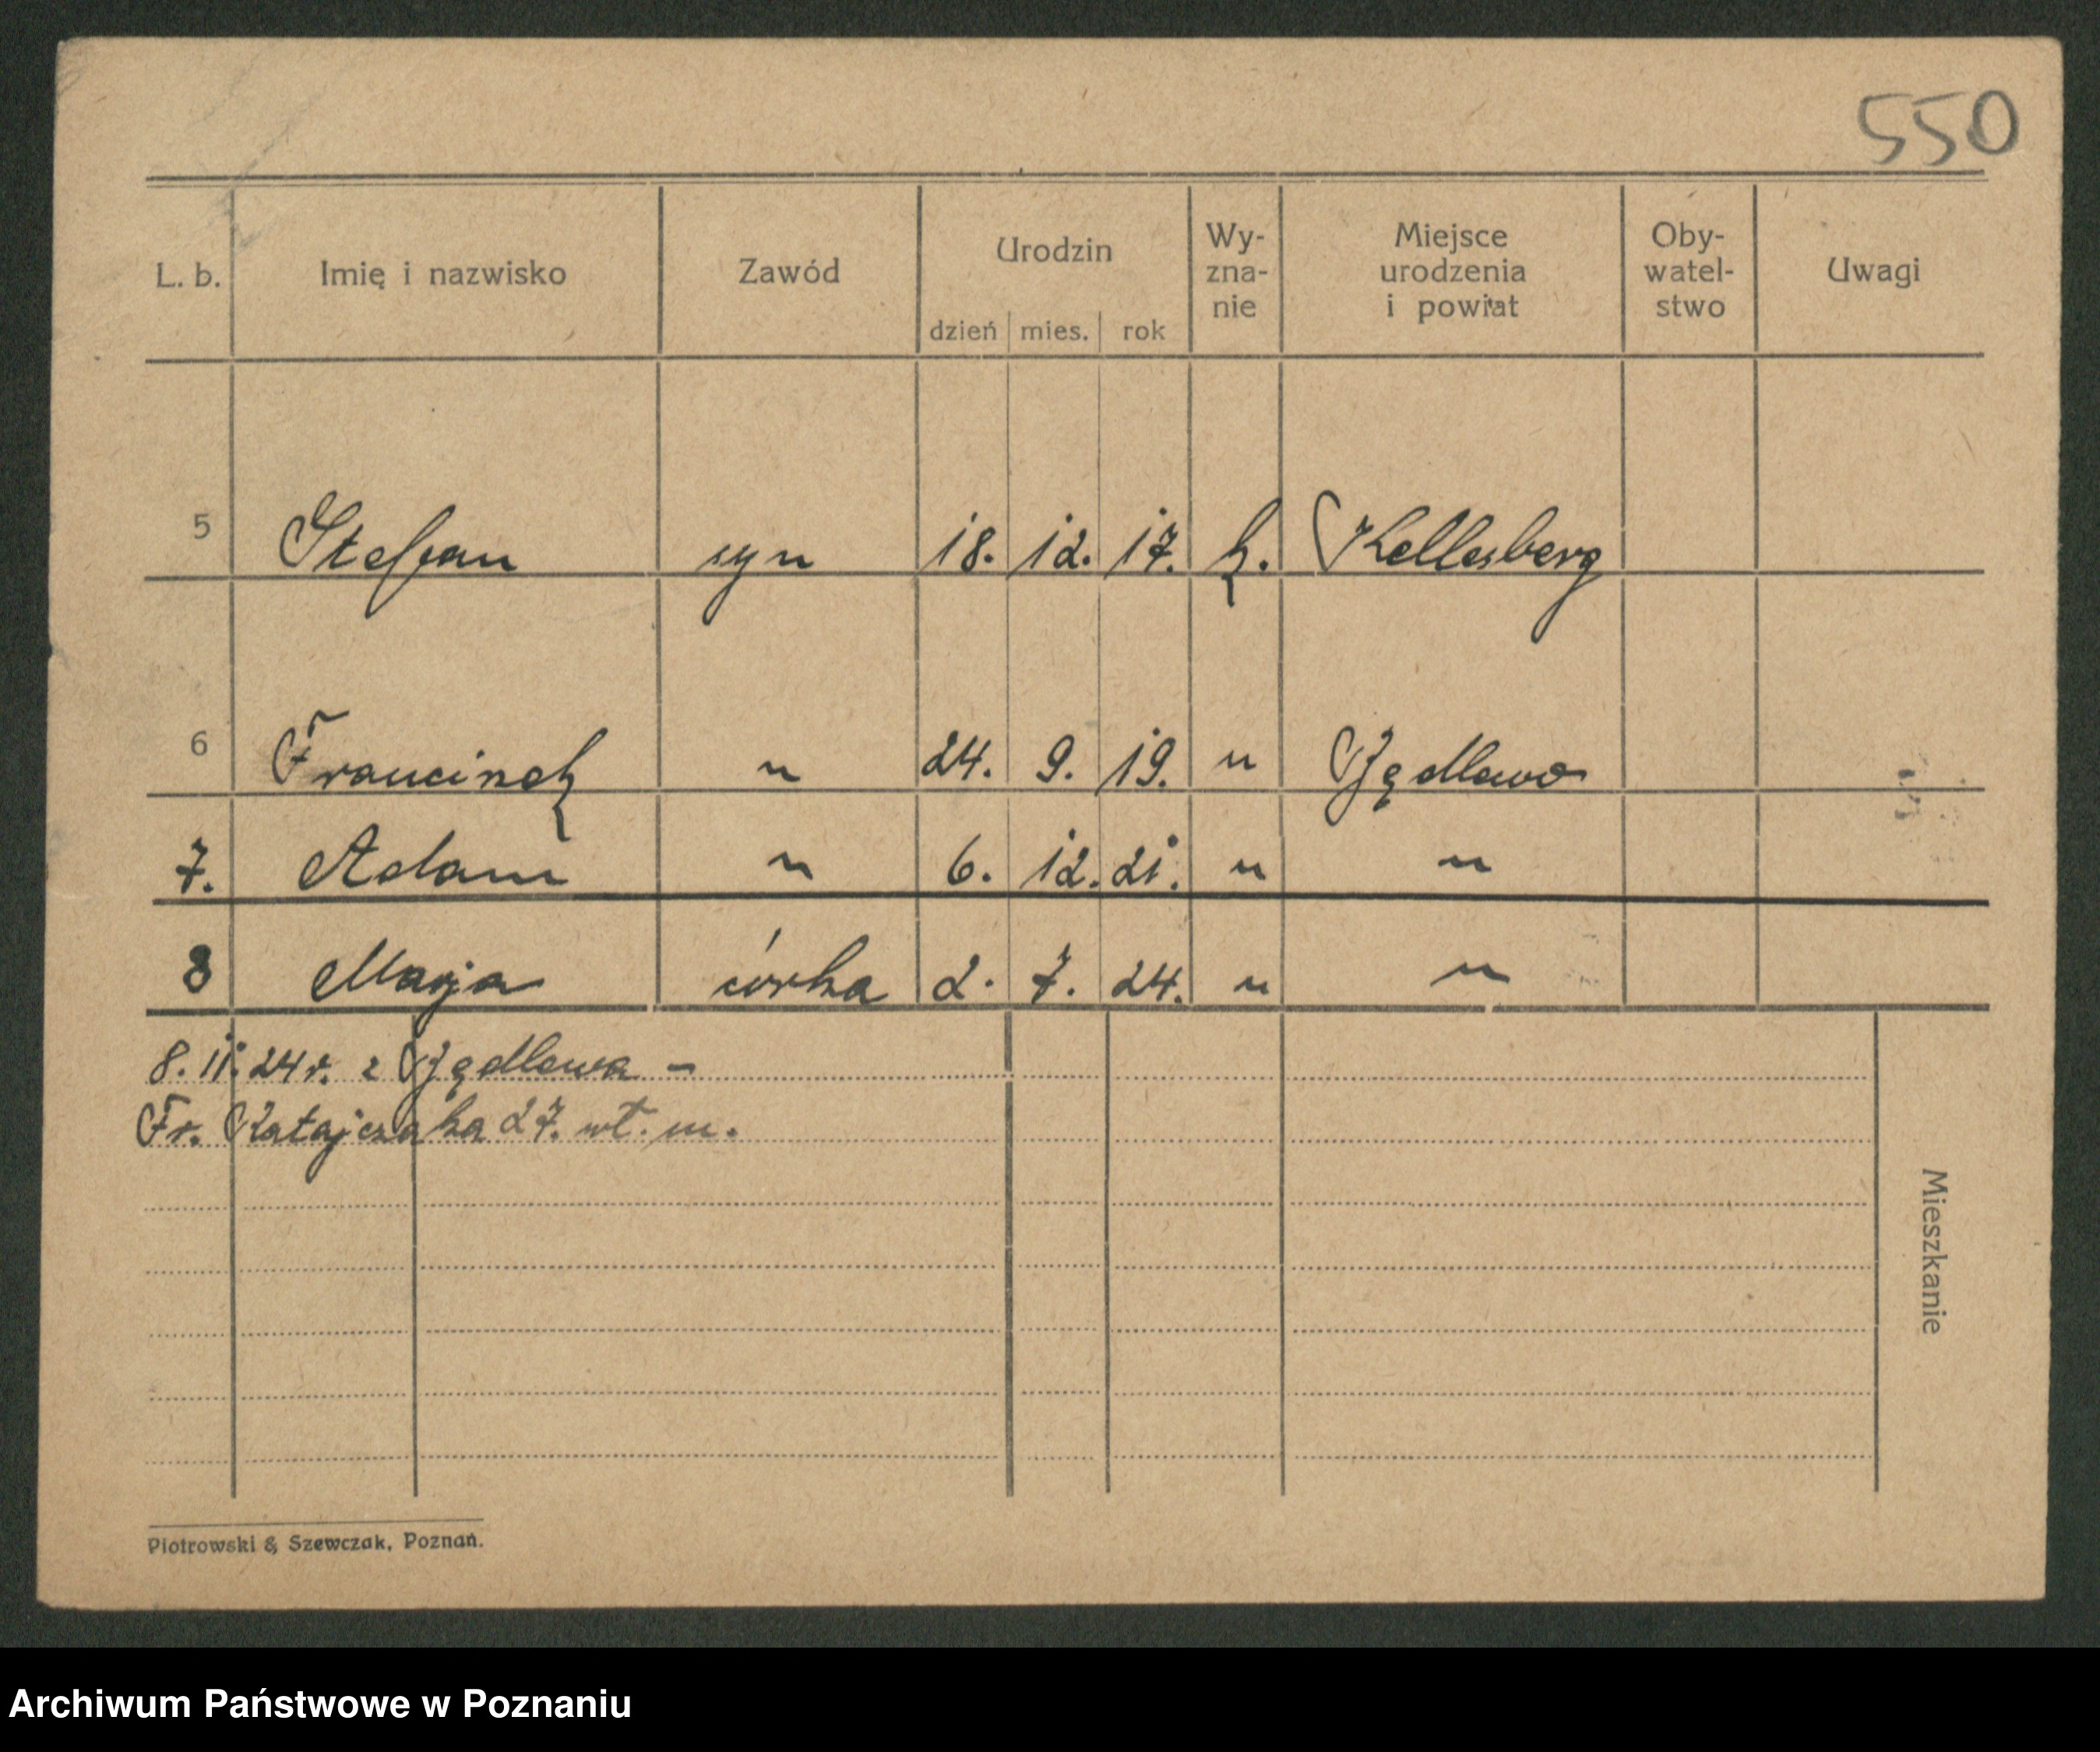 550
L. b. Imię i nazwisko Zawód Urodzin dzień mies. rok Wy-zna-nie Miejsce urodzenia i powiat Oby-watel-stwo Uwagi
5 Stefan syn 18. 12. 17. k. Kellesberg
6 Franciszek " 24. 9. 19. "
7. Adam " 6. 12. 21. " "
8 Marja córka 2. 7. 24. " "
8. 11. 24 r. z
Fr. Ratajczaka 27. wł. m.
Mieszkanie
Piotrowski & Szewczak, Poznań.
Archiwum Państwowe w Poznaniu